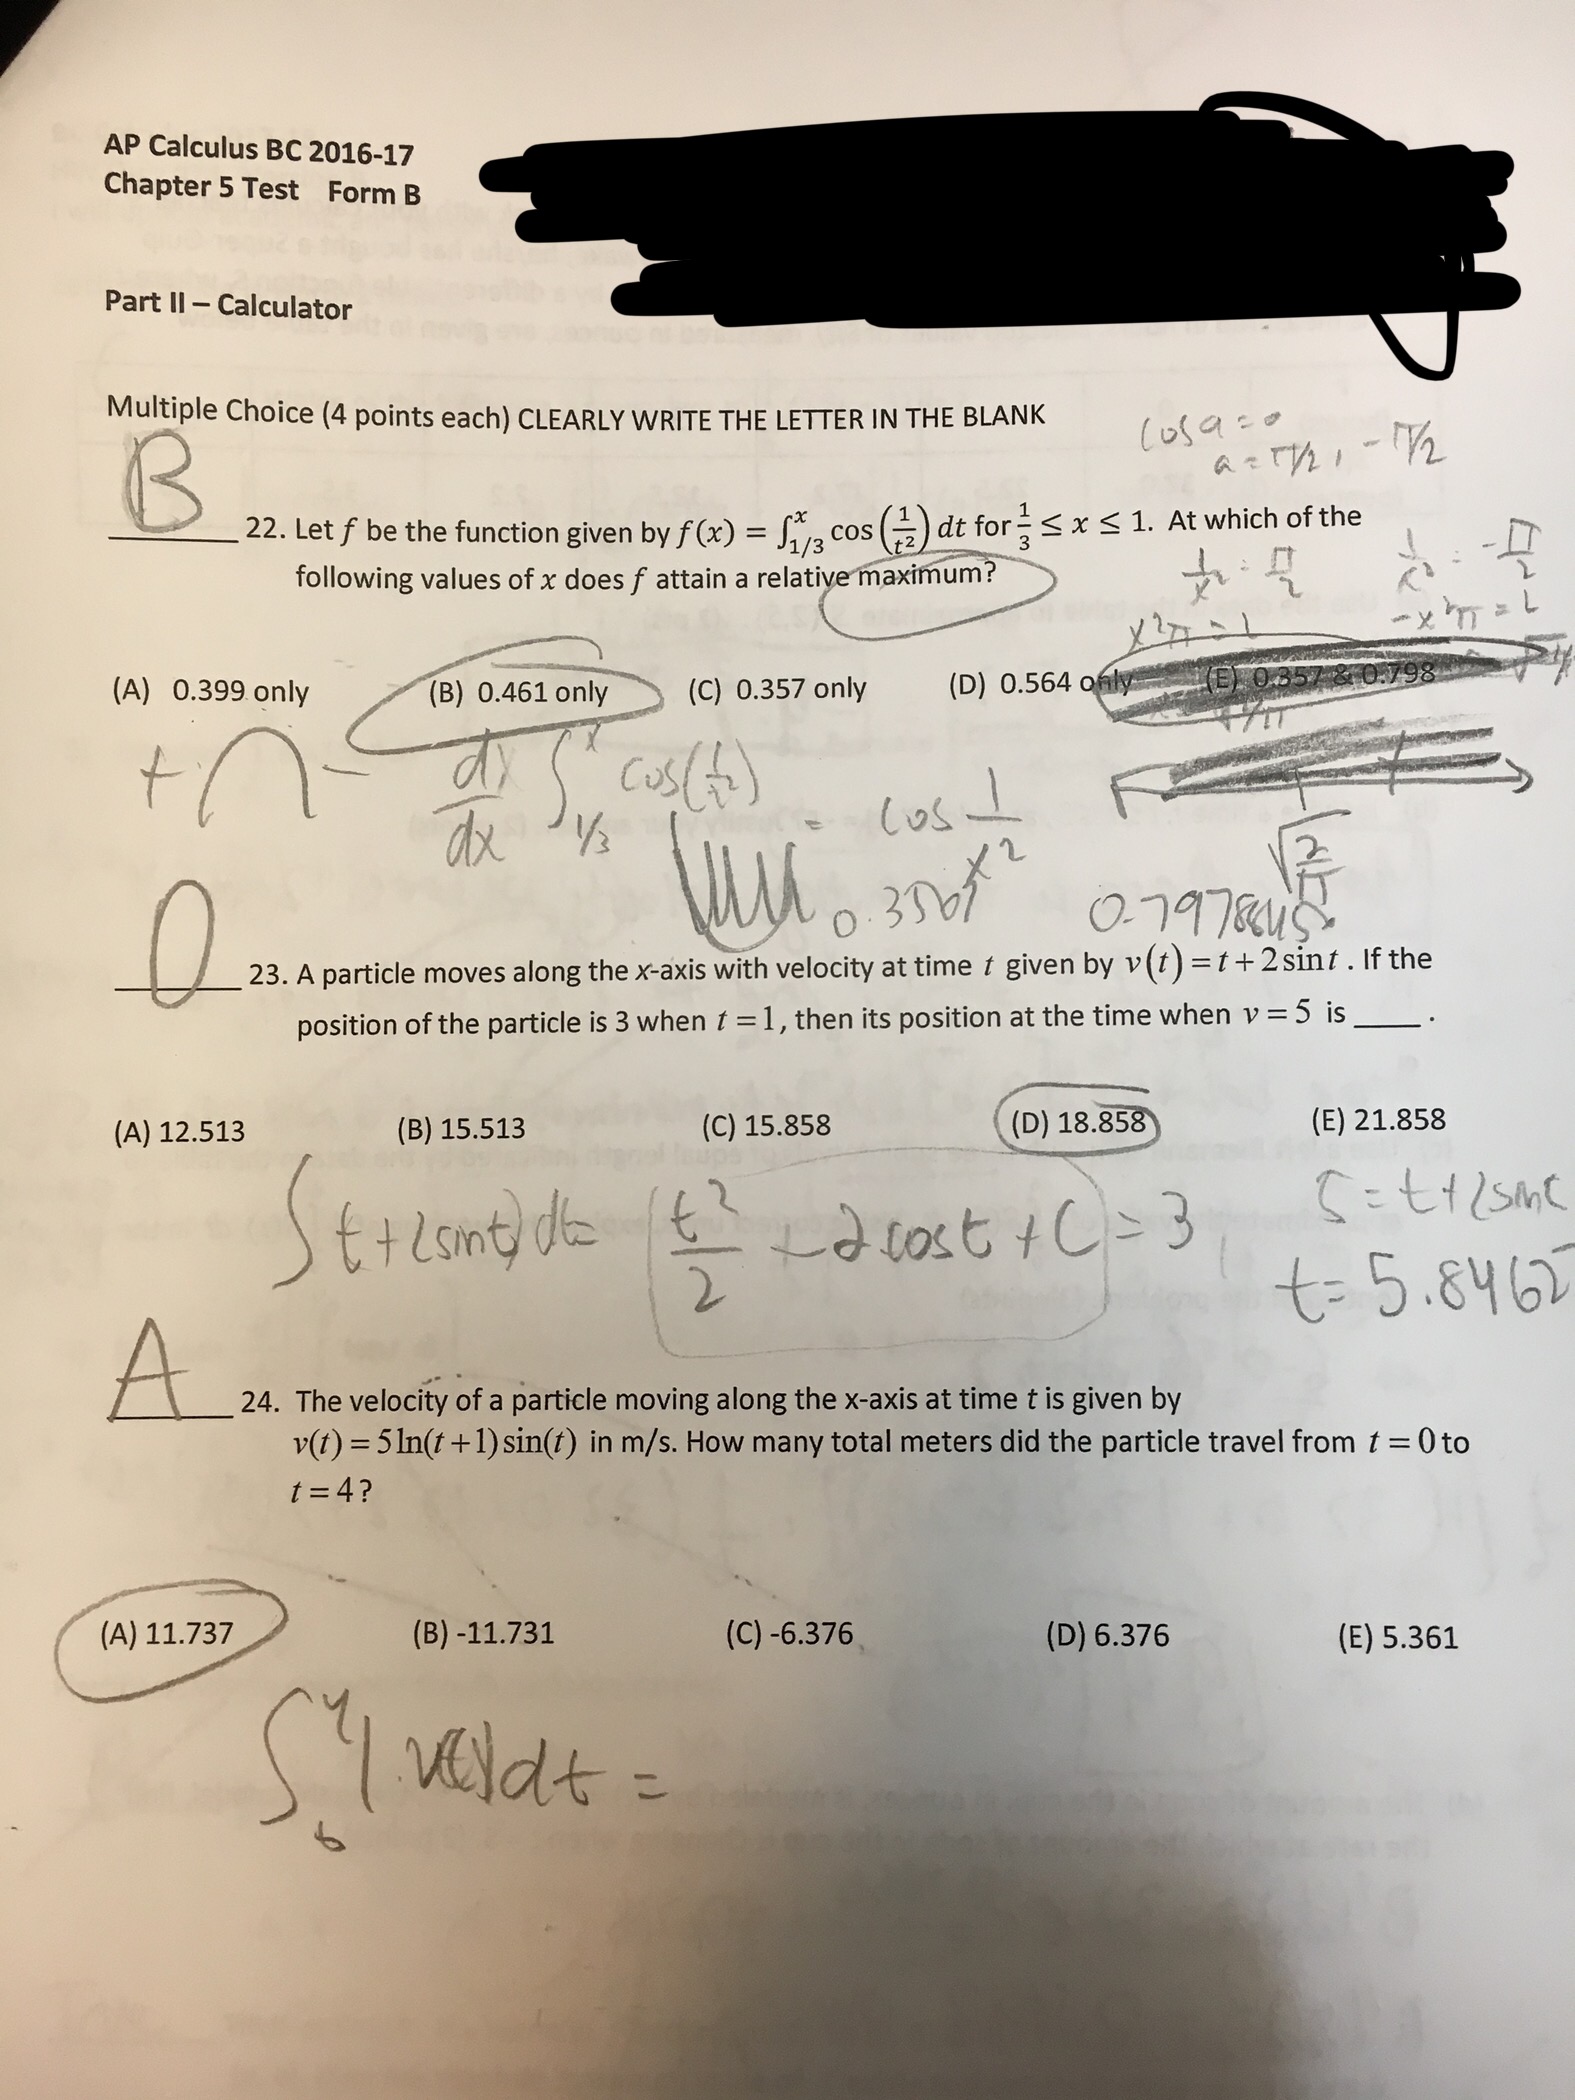 AP Calculus BC 2016-17
Chapter 5 Test Form B
Part II – Calculator
Multiple Choice (4 points each) CLEARLY WRITE THE LETTER IN THE BLANK
cos a = 0
a = π/2, -π/2
B
22. Let f be the function given by f(x) = ∫_{1/3}^{x} cos(1/t²) dt for 1/3 ≤ x ≤ 1. At which of the
following values of x does f attain a relative maximum?
1/x² = π/2
1/x² = -π/2
x²π = 2
-x²π = 2
(A) 0.399 only (B) 0.461 only (C) 0.357 only (D) 0.564 only (E) 0.357 & 0.798
+ -
dx/dx ∫_{1/3}^{x} cos(1/t²) = cos 1/x²
√2/π
0.7978845
D
23. A particle moves along the x-axis with velocity at time t given by v(t) = t + 2 sin t. If the
position of the particle is 3 when t = 1, then its position at the time when v = 5 is ____.
(A) 12.513 (B) 15.513 (C) 15.858 (D) 18.858 (E) 21.858
∫ t + 2 sin t) dt = t²/2 - 2 cos t + C = 3
5 = t + 2 sin t
t = 5.8462
A
24. The velocity of a particle moving along the x-axis at time t is given by
v(t) = 5 ln(t + 1) sin(t) in m/s. How many total meters did the particle travel from t = 0 to
t = 4?
(A) 11.737 (B) -11.731 (C) -6.376 (D) 6.376 (E) 5.361
∫_0^4 |v(t)| dt =